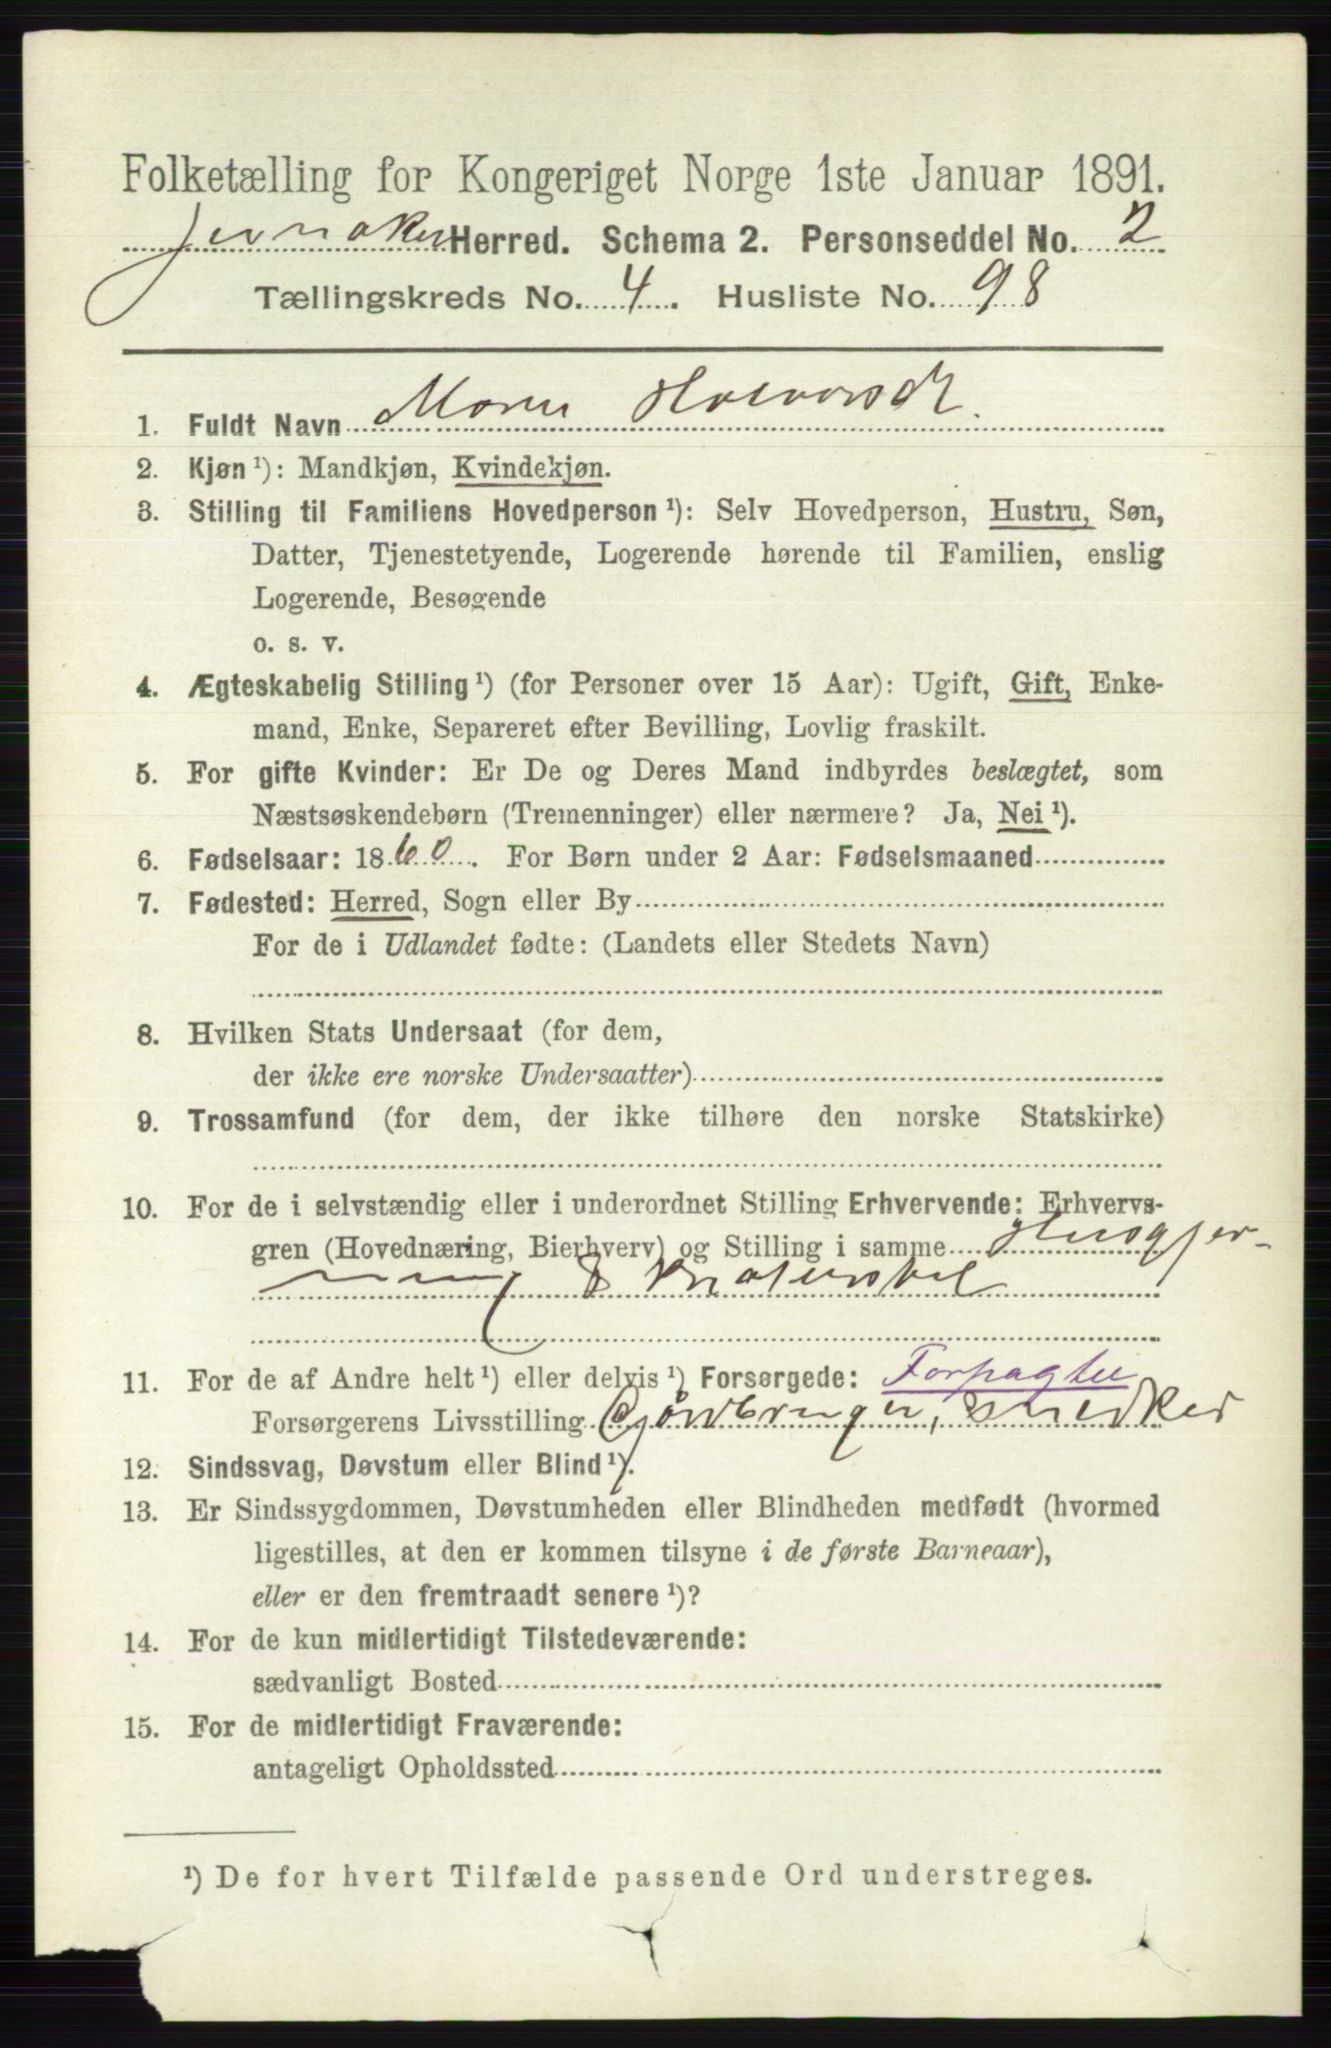 Folketælling for Kongeriget Norge 1ste Januar 1891.
Jevnaker Herred. Schema 2. Personseddel No. 2
Tællingskreds No. 4. Husliste No. 98
1. Fuldt Navn Maren
2. Kjøn ¹): Mandkjøn, Kvindekjøn.
3. Stilling til Familiens Hovedperson ¹): Selv Hovedperson, Hustru, Søn,
Datter, Tjenestetyende, Logerende hørende til Familien, enslig
Logerende, Besøgende
o. s. v.
4. Ægteskabelig Stilling ¹) (for Personer over 15 Aar): Ugift, Gift, Enke-
mand, Enke, Separeret efter Bevilling, Lovlig fraskilt.
5. For gifte Kvinder: Er De og Deres Mand indbyrdes beslægtet, som
Næstsøskendebørn (Tremenninger) eller nærmere? Ja, Nei ¹).
6. Fødselsaar: 1860. For Børn under 2 Aar: Fødselsmaaned
7. Fødested: Herred, Sogn eller By
For de i Udlandet fødte: (Landets eller Stedets Navn)
8. Hvilken Stats Undersaat (for dem,
der ikke ere norske Undersaatter)
9. Trossamfund (for dem, der ikke tilhøre den norske Statskirke)
10. For de i selvstændig eller i underordnet Stilling Erhvervende: Erhvervs-
gren (Hovednæring, Bierhverv) og Stilling i samme Husgjer-
ning & Kreaturstel
11. For de af Andre helt ¹) eller delvis ¹) Forsørgede: Forpagter
Forsørgerens Livsstilling Gårdbruger, Snedker
12. Sindssvag, Døvstum eller Blind ¹).
13. Er Sindssygdommen, Døvstumheden eller Blindheden medfødt (hvormed
ligestilles, at den er kommen tilsyne i de første Barneaar),
eller er den fremtraadt senere ¹)?
14. For de kun midlertidigt Tilstedeværende:
sædvanligt Bosted
15. For de midlertidigt Fraværende:
antageligt Opholdssted
¹) De for hvert Tilfælde passende Ord understreges.